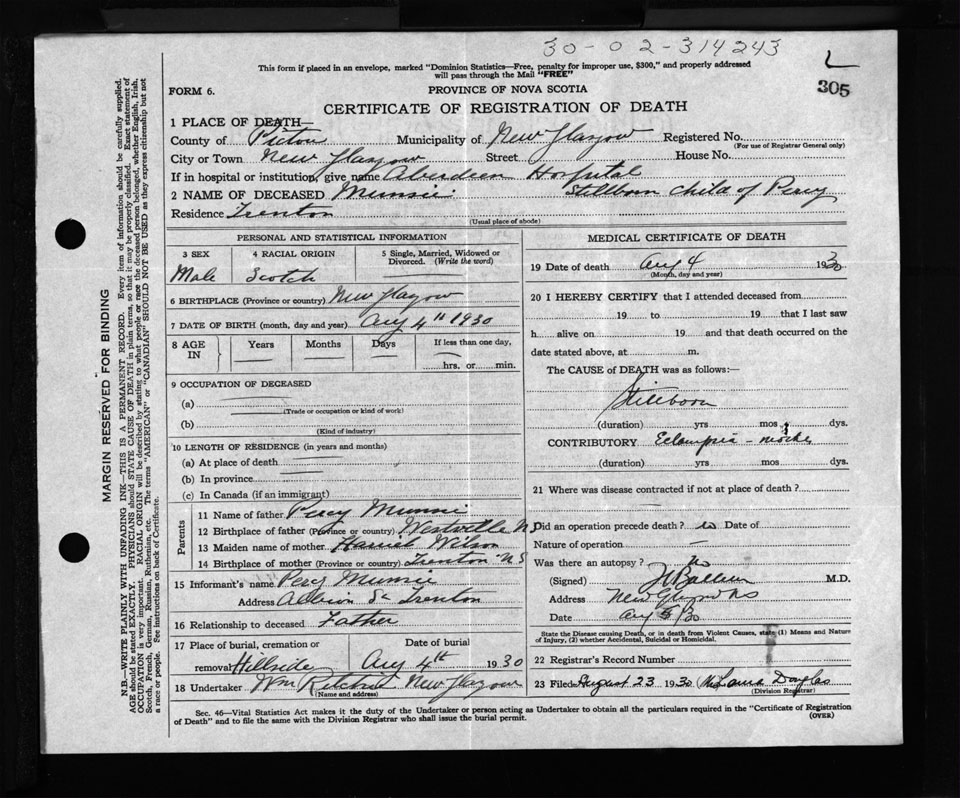 30-02-314243
L
305
This form if placed in an envelope, marked "Dominion Statistics—Free, penalty for improper use, $300," and properly addressed
will pass through the Mail "FREE"
FORM 6.
PROVINCE OF NOVA SCOTIA
CERTIFICATE OF REGISTRATION OF DEATH
1 PLACE OF DEATH—
County of Pictou Municipality of New Glasgow Registered No.
(For use of Registrar General only)
City or Town New Glasgow Street House No.
If in hospital or institution, give name Aberdeen Hospital
2 NAME OF DECEASED Munsie Stillborn Child of Percy
Residence Trenton
(Usual place of abode)
PERSONAL AND STATISTICAL INFORMATION
3 SEX 4 RACIAL ORIGIN 5 Single, Married, Widowed or
Divorced. (Write the word)
Male Scotch
6 BIRTHPLACE (Province or country) New Glasgow
7 DATE OF BIRTH (month, day and year) Aug 4th 1930
8 AGE IN Years Months Days If less than one day,
hrs. or min.
9 OCCUPATION OF DECEASED
(a)
(Trade or occupation or kind of work)
(b)
(Kind of industry)
10 LENGTH OF RESIDENCE (in years and months)
(a) At place of death
(b) In province
(c) In Canada (if an immigrant)
Parents
11 Name of father Percy Munsie
12 Birthplace of father (Province or country) Westville N S
13 Maiden name of mother Harriet Wilson
14 Birthplace of mother (Province or country) Trenton N S
15 Informant's name Percy Munsie
Address Albion St Trenton
16 Relationship to deceased Father
17 Place of burial, cremation or Date of burial
removal Hillside Aug 4th 1930
18 Undertaker Wm Ritchie New Glasgow
(Name and address)
MEDICAL CERTIFICATE OF DEATH
19 Date of death Aug 4 1930
(Month, day and year)
20 I HEREBY CERTIFY that I attended deceased from
19 to 19 that I last saw
h alive on 19 and that death occurred on the
date stated above, at m.
The CAUSE of DEATH was as follows:—
Stillborn
(duration) yrs mos dys.
CONTRIBUTORY Eclampsia - mother
(duration) yrs mos dys.
21 Where was disease contracted if not at place of death?
Did an operation precede death? no Date of
Nature of operation
Was there an autopsy? no
(Signed) M.D.
Address New Glasgow NS
Date Aug 5/30
State the Disease causing Death, or in death from Violent Causes, state (1) Means and Nature
of Injury, (2) whether Accidental, Suicidal or Homicidal.
22 Registrar's Record Number
23 Filed August 23 1930 Douglas
(Division Registrar)
Sec. 46—Vital Statistics Act makes it the duty of the Undertaker or person acting as Undertaker to obtain all the particulars required in the "Certificate of Registration
of Death" and to file the same with the Division Registrar who shall issue the burial permit.
(OVER)
MARGIN RESERVED FOR BINDING
N.B.—WRITE PLAINLY WITH UNFADING INK—THIS IS A PERMANENT RECORD. Every item of information should be carefully supplied.
AGE should be stated EXACTLY. PHYSICIANS should STATE CAUSE OF DEATH in plain terms, so that it may be properly classified. Exact statement of
OCCUPATION is very important. RACIAL ORIGIN will be described by stating to what people or race the deceased person belonged, whether English, Irish,
Scotch, French, German, Russian, Ruthenian, etc. The terms "AMERICAN" or "CANADIAN" SHOULD NOT BE USED as they express citizenship but not
a race or people. See instructions on back of Certificate.